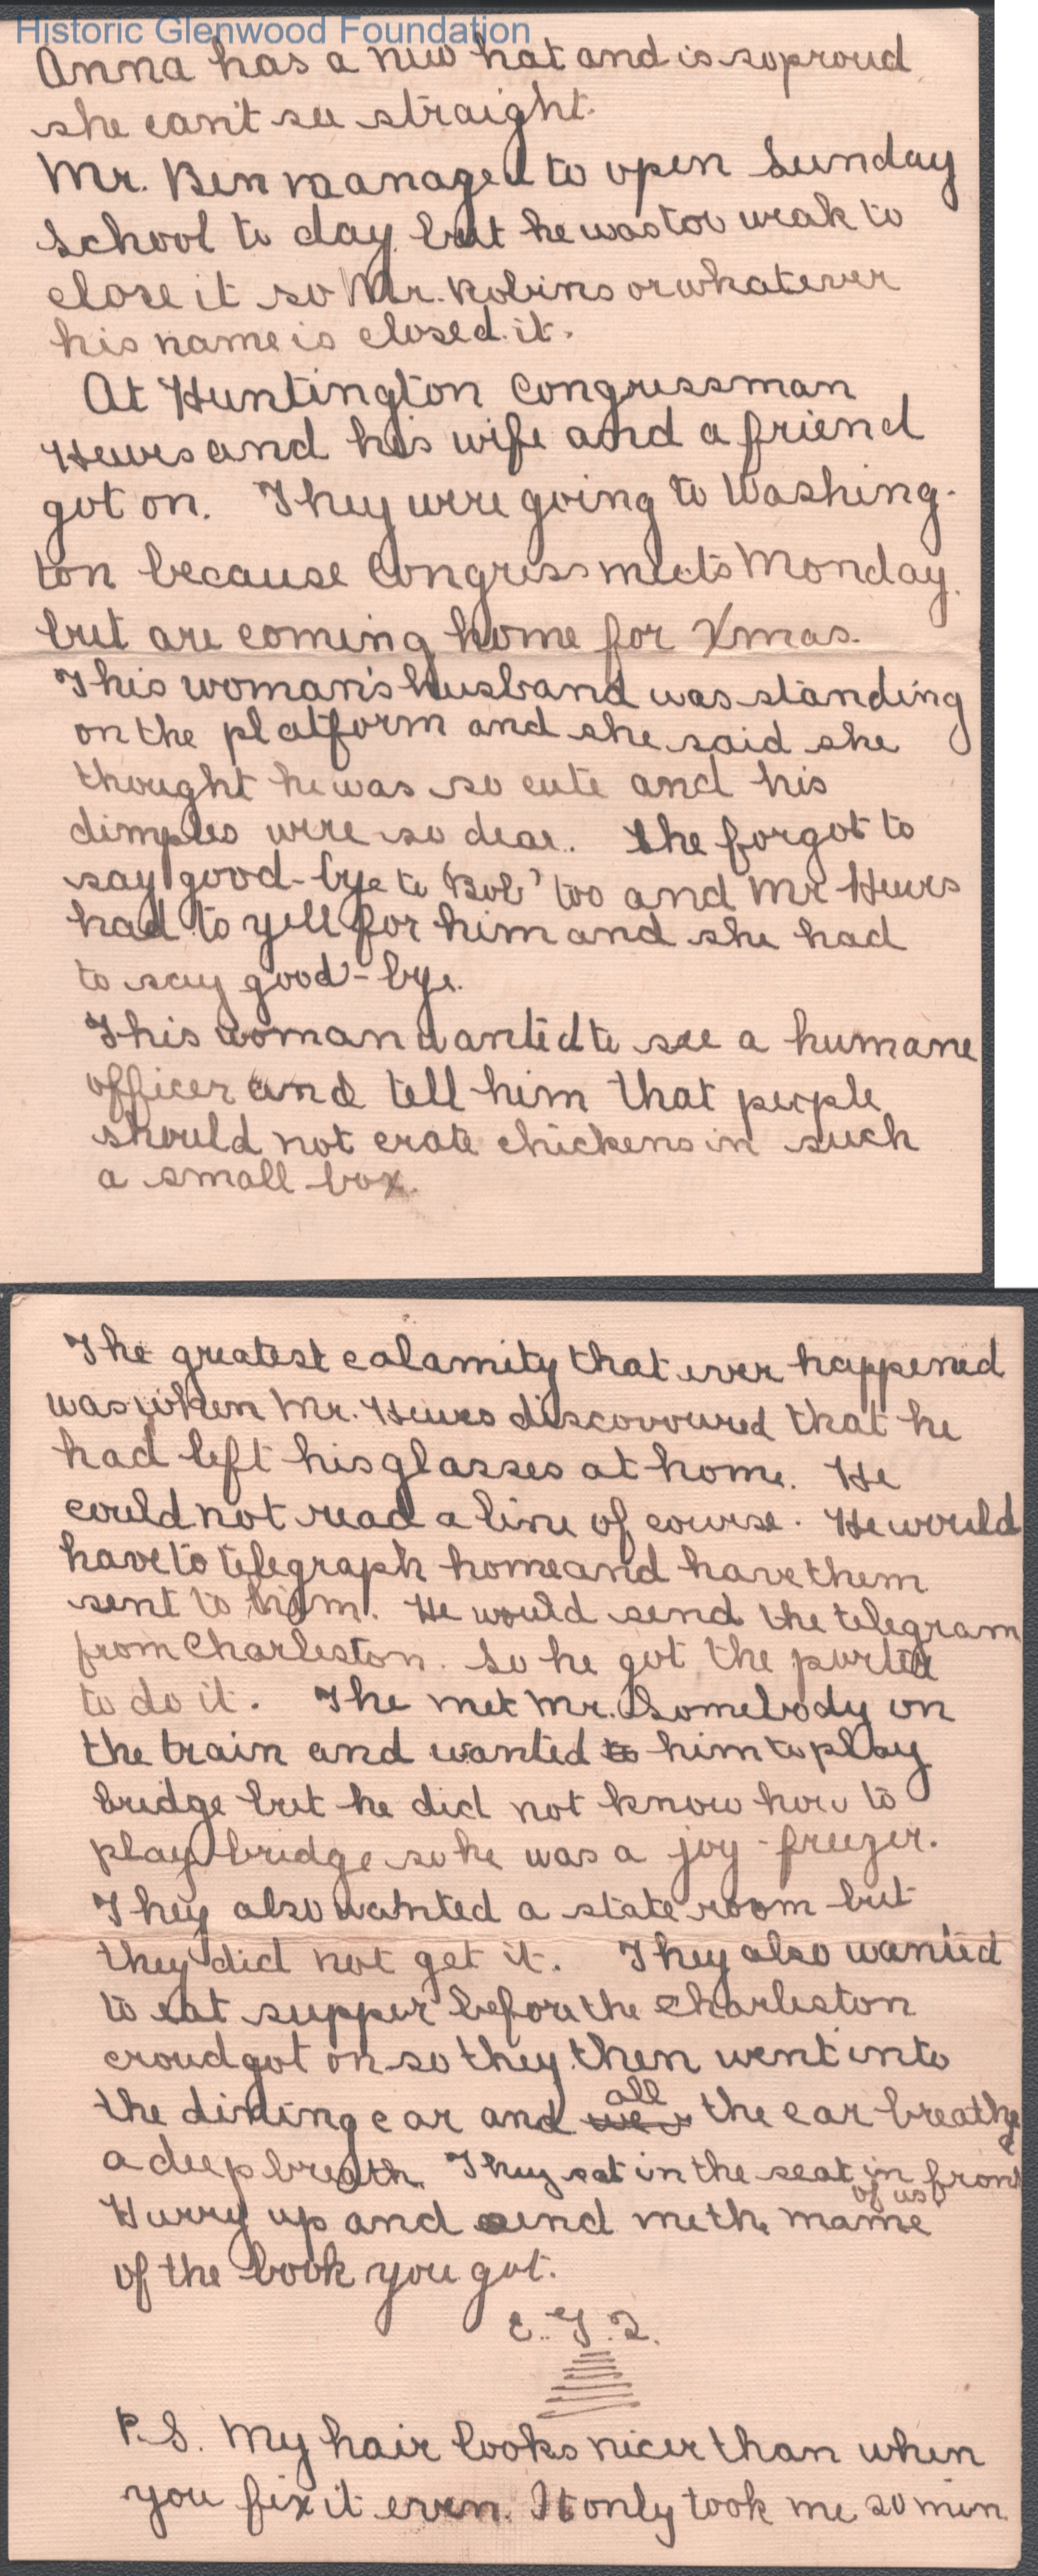 Historic Glenwood Foundation
Anna has a new hat and is so proud
she can't see straight.
Mr. Ben managed to open Sunday
School to day but he was too weak to
close it so Mr. Robins or whatever
his name is closed it.
At Huntington Congressman
Hews and his wife and a friend
got on. They were going to Washing-
ton because Congress meets Monday.
but are coming home for Xmas.
This woman's husband was standing
on the platform and she said she
thought he was so cute and his
dimples were so dear. She forgot to
say good-bye to "Bob" too and Mr Hews
had to yell for him and she had
to say good-bye.
This woman wanted to see a humane
officer and tell him that people
should not crate chickens in such
a small box.
The greatest calamity that ever happened
was when Mr. Hews discovoured that he
had left his glasses at home. He
could not read a line of course. He would
have to telegraph home and have them
sent to him. He would send the telegram
from Charleston. So he got the porter
to do it. The met Mr. Somebody on
the train and wanted to him to play
bridge but he did not know how to
play bridge so he was a joy-freezer.
They also wanted a state room but
they did not get it. They also wanted
to eat supper before the Charleston
croud got on so they then went into
the dining car and all the car breathe
a deep breath. They sat in the seat in front
of us.
Hurry up and send me the mame
of the book you got.
E. T. Q.
P.S. My hair looks nicer than when
you fix it even. It only took me 20 min.